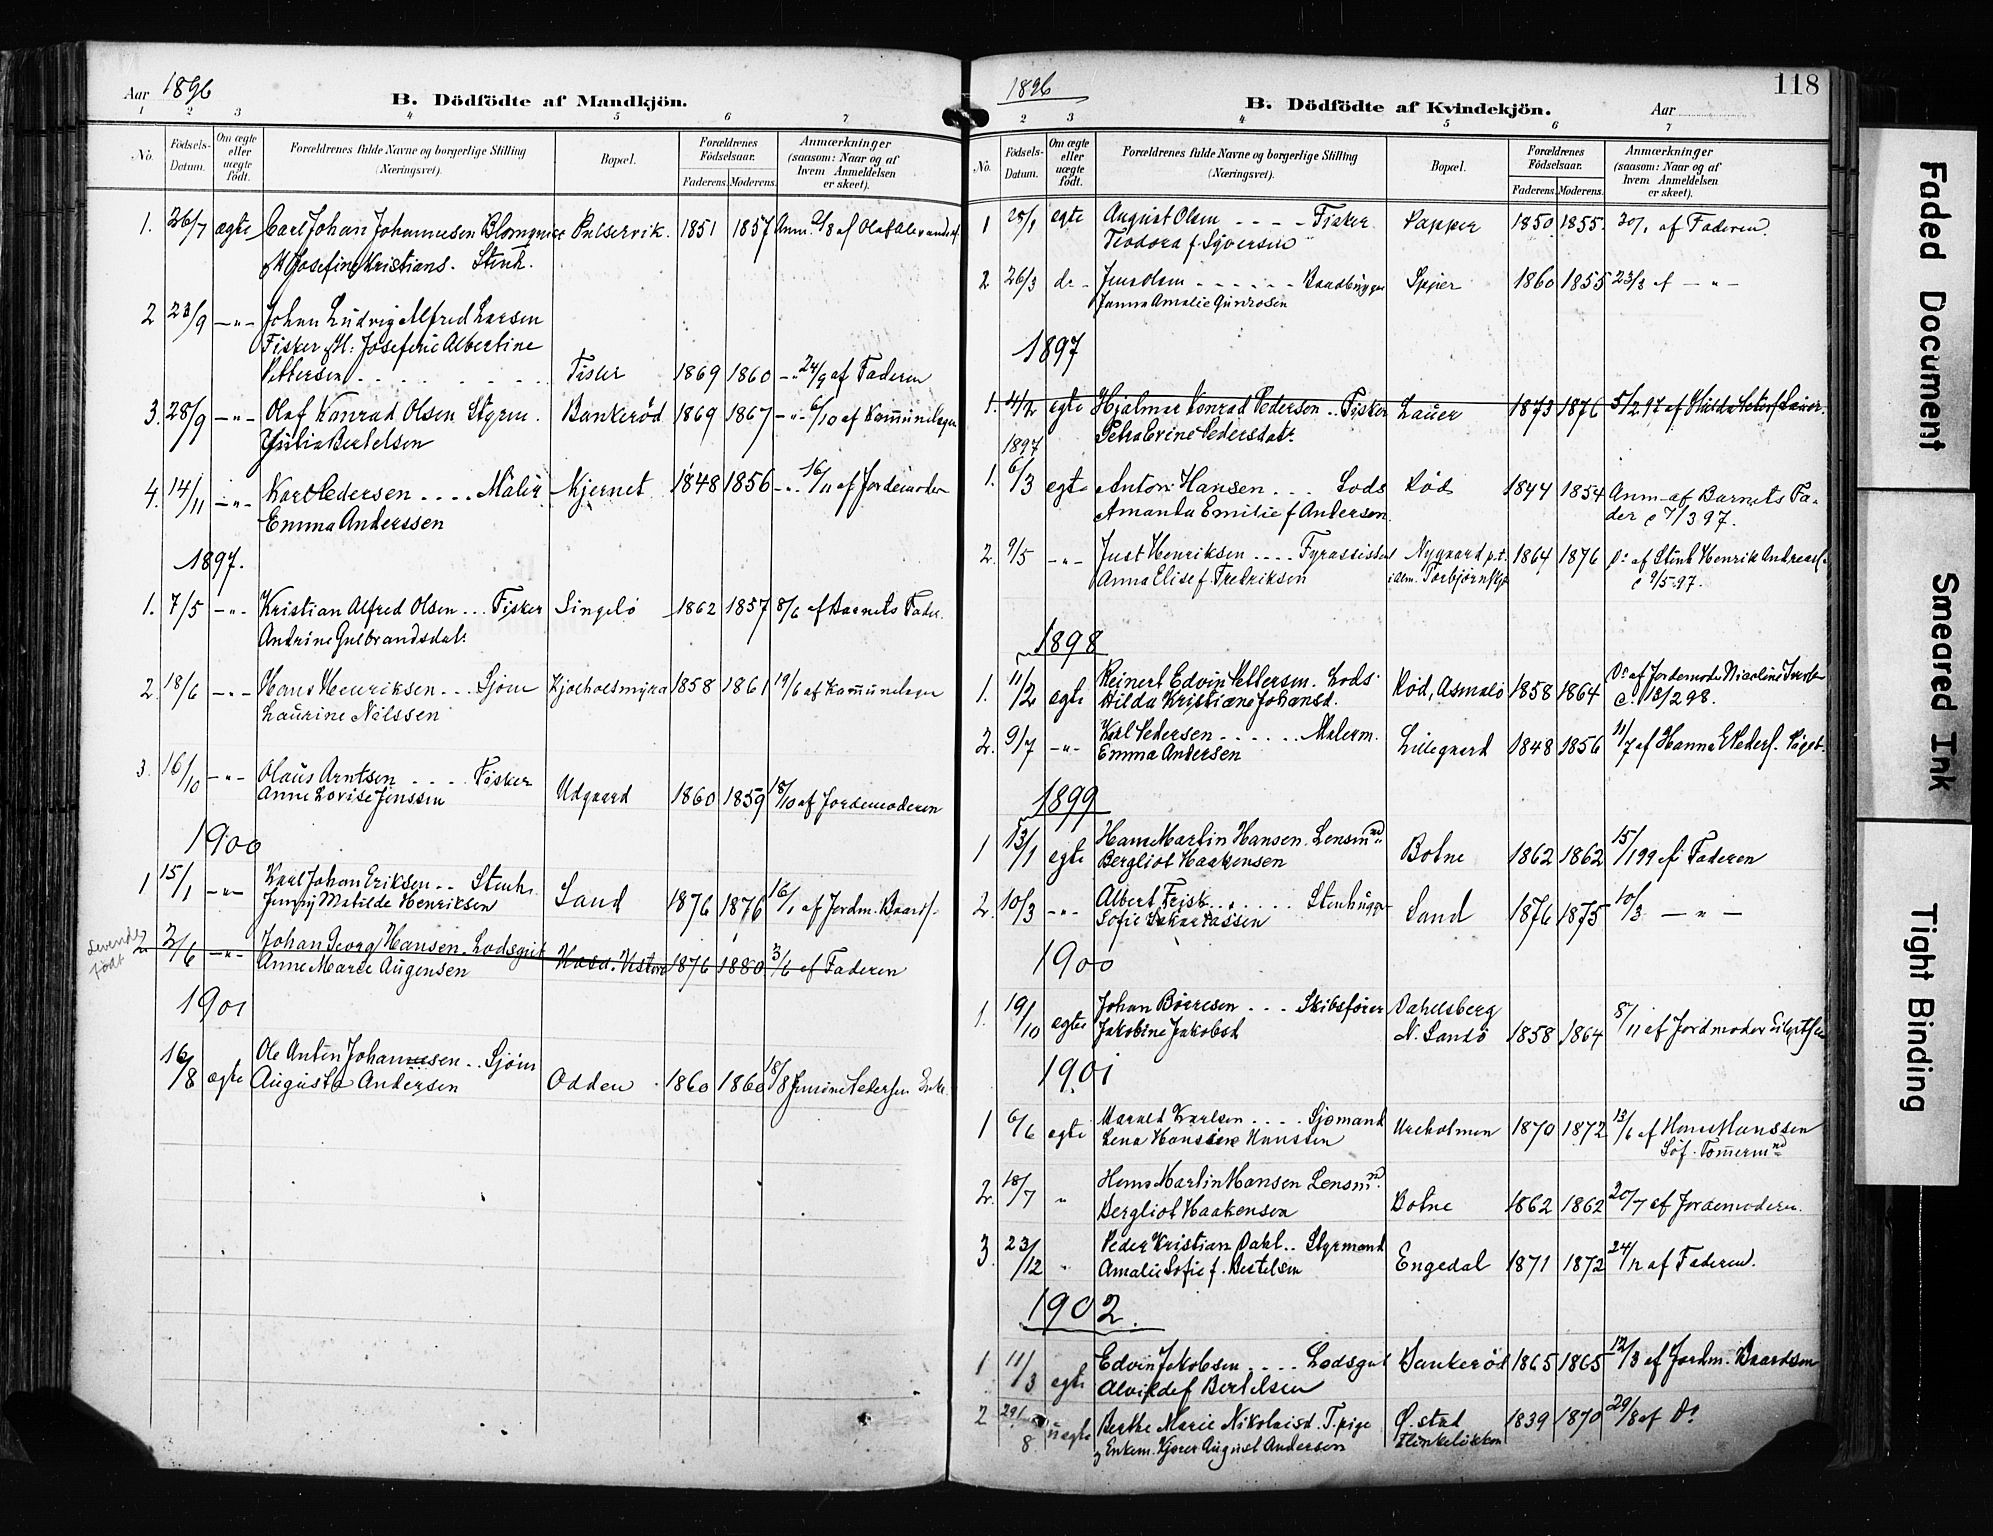 Aar 1896
B. Dödfödte af Mandkjön.
1 2 3 4 5 6 7
No.
Födsels-Datum.
Om ægte eller uægte födt.
Forældrenes fulde Navne og borgerlige Stilling (Næringsvei).
Bopæl.
Forældrenes Födselsaar.
Faderens. Moderens.
Anmærkninger (saasom: Naar og af hvem Anmeldelsen er skeet).
1. 26/7 ægte Carl Johan Johannesen 1851 1857 Anm.
Josefine Kristians. Stenh.
2 23/9 -"- Johan Ludvig Alfred Larsen
Fisker Albertine
Pettersen 1869 1860 -"- 24/9 af Faderen
3. 28/9 -"- Olaf Konrad Olsen Styrm. Bankerød 1869 1867 -"- 6/10 af
Julia Bertelsen
4. 14/11 -"- Karl Pedersen .... Maler Kjernet 1848 1856 -"- 16/11 af Jordemoder
Emma Anderssen
1897.
1. 7/5 -"- Kristian Alfred Olsen ... Fisker Singelø 1862 1857 8/6 af Barnets Fader.
Andrine Gulbrandsdat.
2. 18/6 -"- Hans Henriksen ... Sjøm 1858 1861 19/6 af
Laurine Nilssen
3. 16/10 -"- Olaus Arntsen .... Fisker
Anne Lovise Jenssen Udgaard 1860 1859 18/10 af Jordemoderen
1900
1 15/1 -"- Karl Johan Eriksen .. Stenh.
Jenny Matilde Henriksen Sand 1876 1876 16/1 af Jordm. Baards.
Levende født
2 2/6 -"- Johan Georg Hansen. Lodsgut
Anne Marie Augensen 1876 1880 3/6 af Faderen
1901
16/8 ægte Ole Anton Johannesen .. Sjøm
Augusta Andersen Odden 1860 1860 18/8 Pedersen Enke
1896
118
B. Dödfödte af Kvindekjön.
Aar
2 3 4 5 6 7
No.
Födsels-Datum.
Om ægte eller uægte födt.
Forældrenes fulde Navne og borgerlige Stilling (Næringsvei).
Bopæl.
Forældrenes Födselsaar.
Faderens. Moderens.
Anmærkninger (saasom: Naar og af hvem Anmeldelsen er skeet).
1 egte August Olsen .... Fisker Papper 1850 1855 20/1 af Faderen.
Teodora f. Syversen
2 26/3 do - Jens Olsen Spjær 1860 1855 23/3 af -"-
Amalie
1897
1. 4/2 egte Hjalmar Konrad Pederson .. Fisker Lauer 1873 1876 5/2 97 af Hilda
1897 Pedersdat.
1. 6/3 egte Anton Hansen ... Lods Rød 1844 1854 Anm. af Barnets Fa-
Amanda Emilie f Andersen der 7/3 97.
2. 9/5 -"- Just Henriksen .... Fyrassistent Nygaard p.t. 1864 1876 Do af Henrik
Anna Elise f. Fredriksen 9/5-97.
1898
1. 11/2 egte Reinert Edvin Pettersen. Lods Rød, Asmalø 1858 1864 Do af Jordemoder Nicoline
Hilda Kristiane Johansd. 18/2 98.
2. 9/7 -"- Karl Pedersen ...... Malerm. Lillegaard 1848 1856 11/7 af Hanna
Emma Andersen
1899
1 13/1 egte Hans Martin Hansen. Lensmnd Botne 1862 1862 15/1 99 af Faderen
Bergliot Haakensen
2. 10/3 -"- Albert Stenhugger Sand 1876 1875 10/3 -"-
Sofie
1900
1. 19/10 egte Johan Børresen ... Skibsfører Dahelsberg
Jakobine Jakobsd N. Sandø 1858 1864 8/11 af Jordmoder
1901
1 6/6 egte Harald Karlsen .... Sjømand Ureholmen 1870 1872 13/6 af Hans Hanssen
Lena Hanssen Søf. Tømermnd
2. 18/7 " Hans Martin Hansen Lensmnd. Botne 1862 1862 20/7 af Jordemoderen.
Bergliot Haakensen
3. 23/12 " Peder Kristian Dahl .. Styrmand Engedal 1871 1872 24/12 af Faderen.
Amalie Sofie f. Bertelsen
1902.
1 11/3 egte Edvin Jakobsen .... Lodsgut Bankerød 1865 1865 12/3 af Jordm. Baardsen
Alvilde f Bertelsen
2 29/8 uegte Berthe Marie Nikolaisd. T.pige Ø. stad 1839 1870 29/8 af Do
Enkem. August Andersen
Faded Document
Smeared Ink
Tight Binding